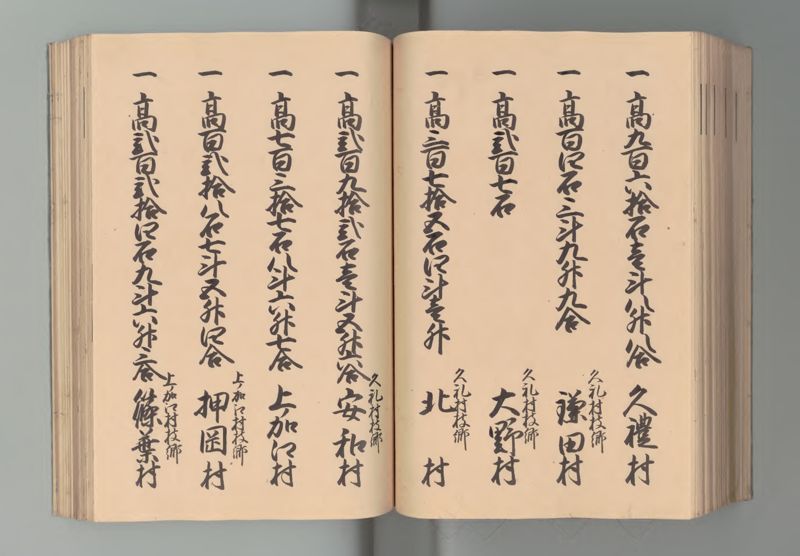 一高九百六拾石壱斗八升八合 久禮村
一高百四石三斗九升九合 久礼村枝郷 鎌田村
一高弐百七石 久礼村枝郷 大野村
一高三百七拾五石四斗壱升 久礼村枝郷 北村
一高弐百九拾弐石壱斗五升六合 久礼村枝郷 安和村
一高七百三拾七石八斗六升七合 上ノ加江村
一高百弐拾八石七斗五升四合 上ノ加江村枝郷 押岡村
一高弐百弐拾四石九斗六升三合 上ノ加江村枝郷 篠葉村